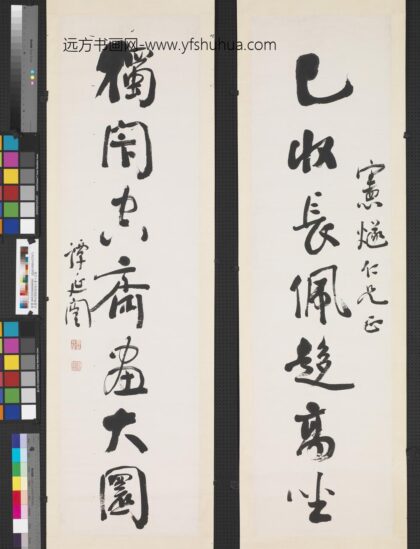 远方书画网-www.yfshuhua.com
憲燧仁兄正
已收長佩趨高坐
獨閉空齋畫大圜
譚延闓